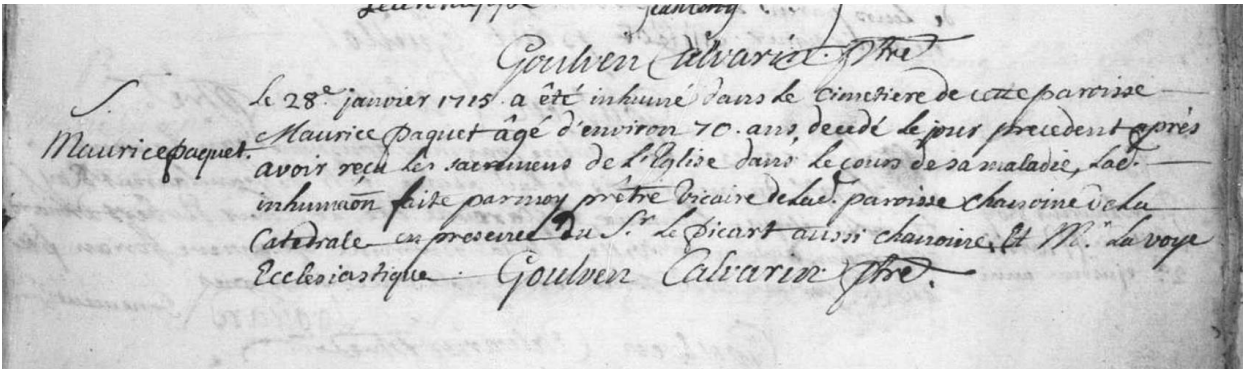 Goulven Calvarin. ptre
S.
Mauricepaquet.
Le 28e. janvier 1715. a êté inhumé dans le Cimetiere de cette paroisse
Maurice paquet âgé d'environ 70. ans, decedé le jour precedent après
avoir reçu les sacremens de l'Eglise dans le cours de sa maladie, lad.
inhumaôn faite par moy prêtre Vicaire de lad. paroisse chanoine de la
Catedrale en presence du Sr. le picart aussi chanoine, Et Mr. la voye
Ecclesiastique.
Goulven Calvarin ptre.